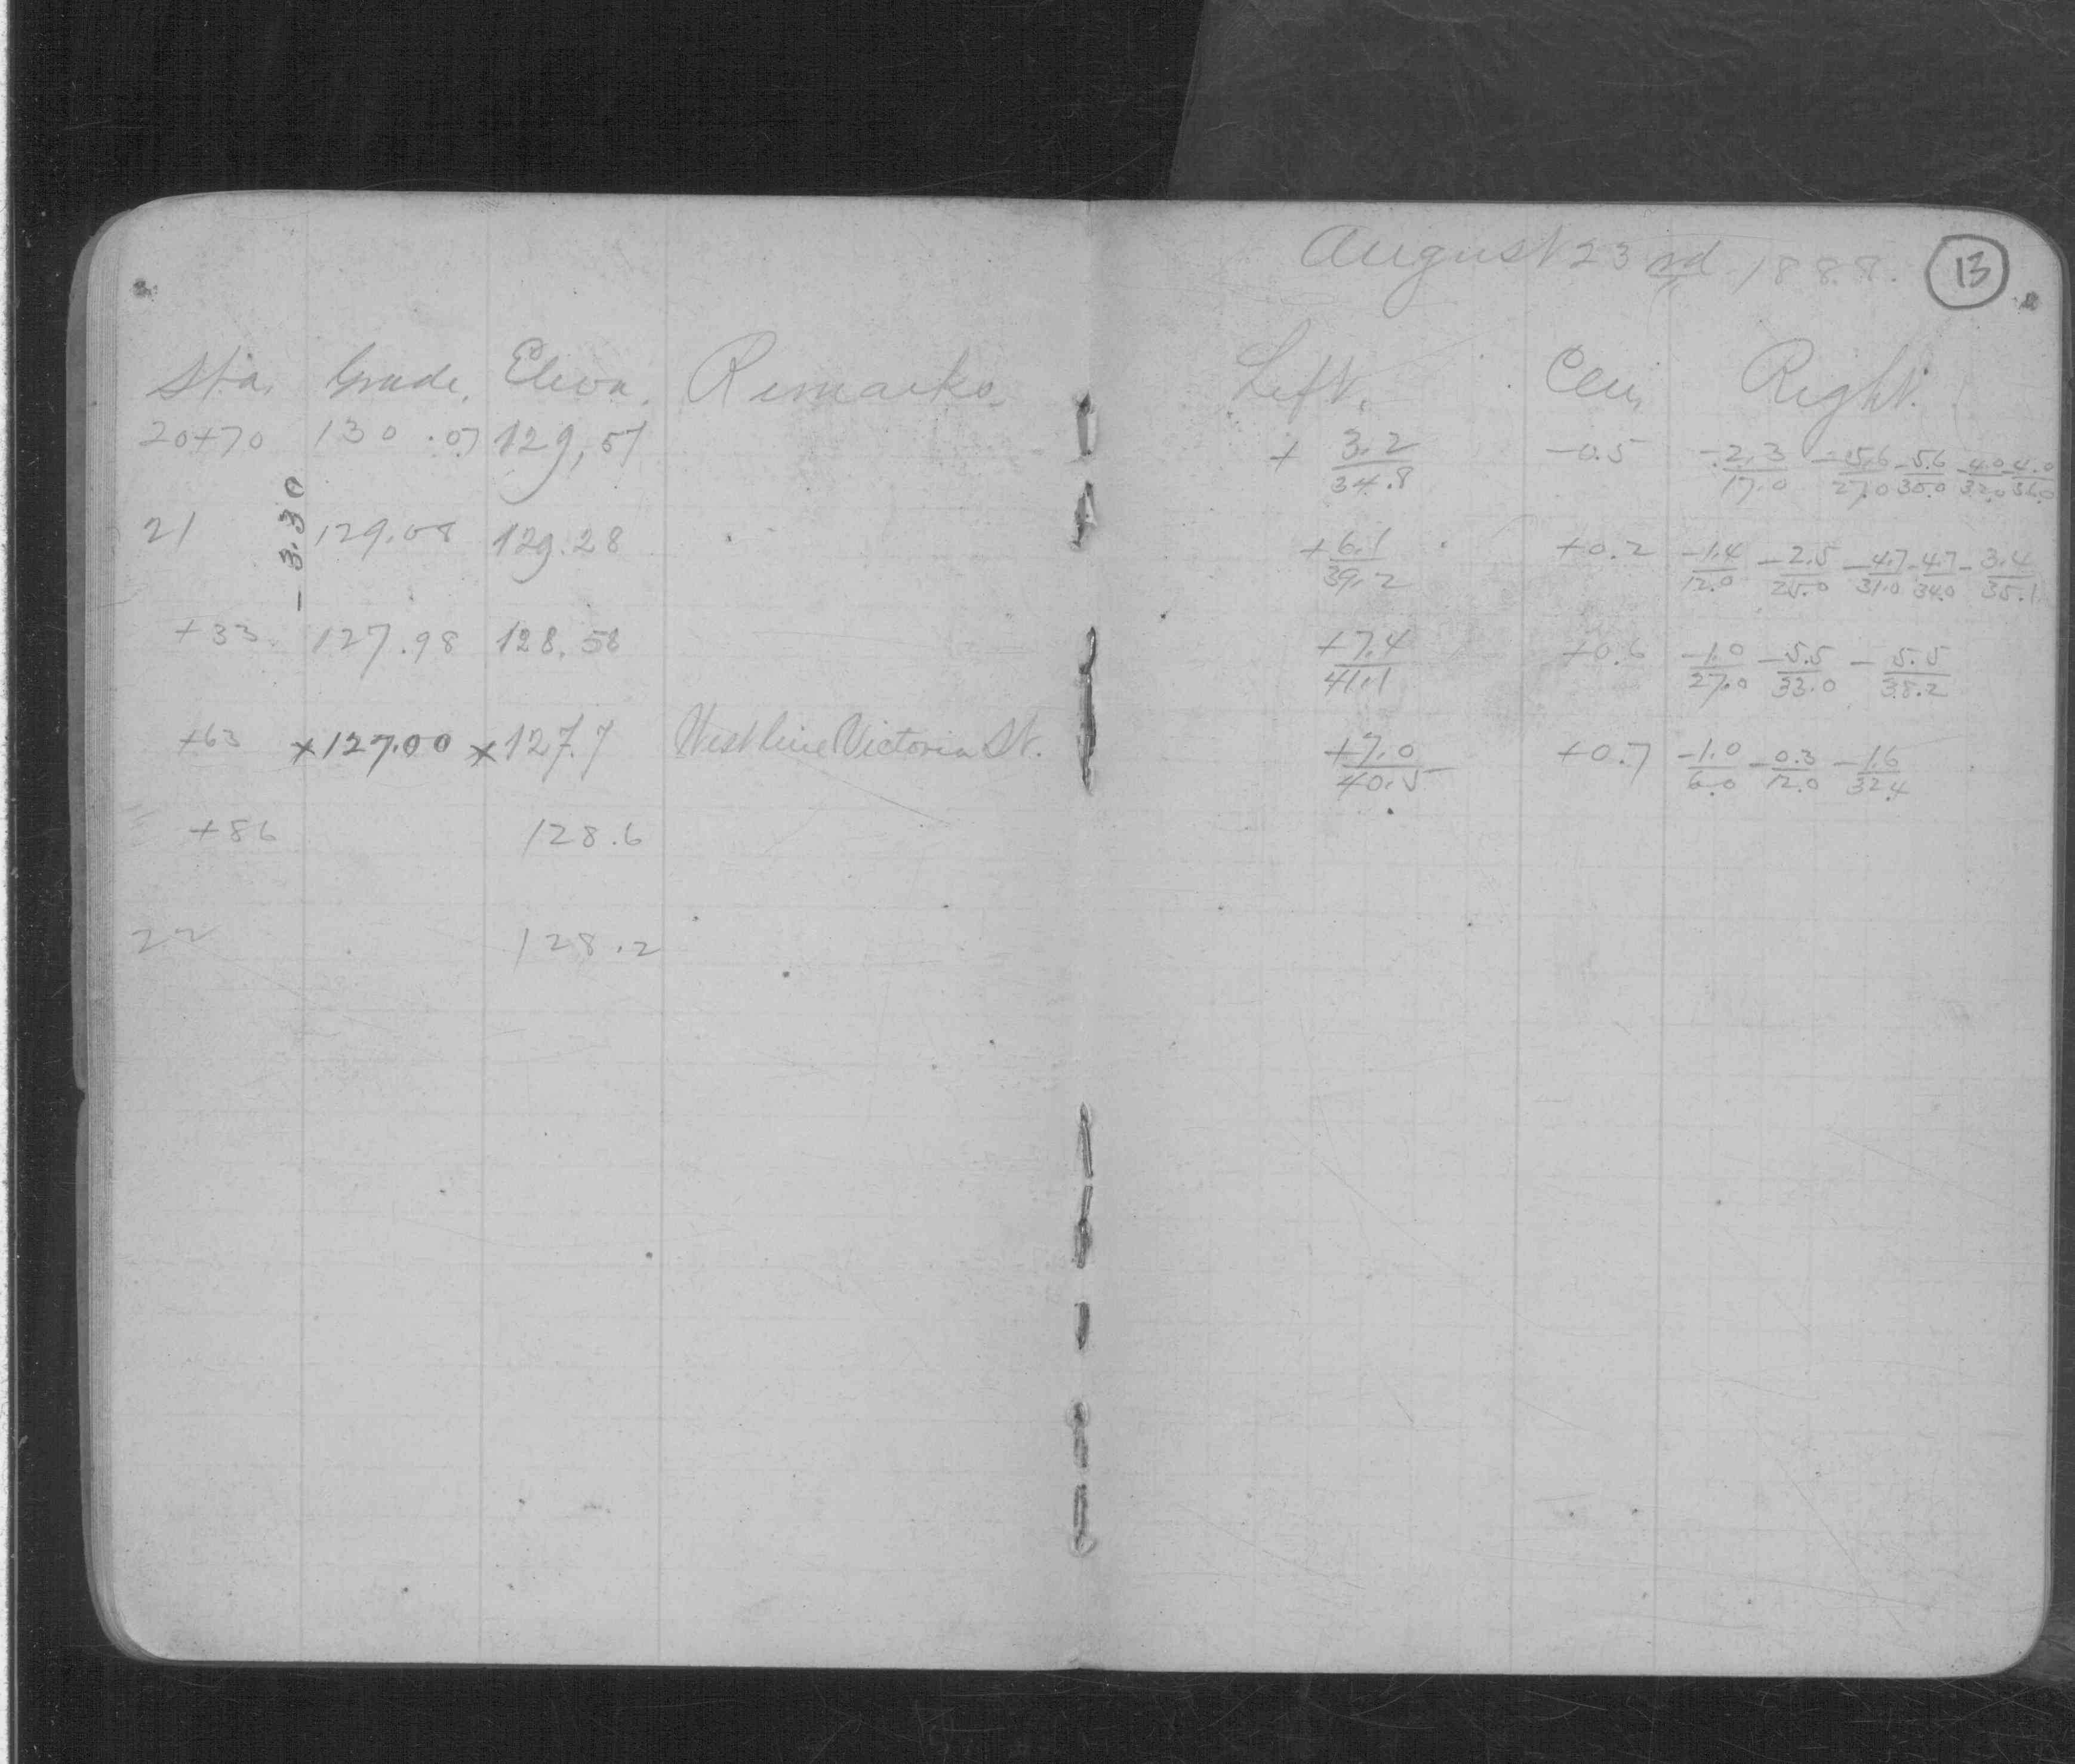 August 23rd 1888. 13
Sta. Grade. Eleva. Remarks. Left. Cen. Right.
20+70 130.07 129.57 + 3.2/34.8 -0.5 -2.3/17.0 -5.6/27.0 -5.6/30.0 -4.0/32.0 -4.0/36.0
-3.30
21 129.08 129.28 +6.1/39.2 +0.2 -1.4/12.0 -2.5/25.0 -4.7/31.0 -4.7/34.0 -3.4/35.1
+33 127.98 128.58 +7.4/41.1 +0.6 -1.0/27.0 -5.5/33.0 -5.5/38.2
+63 x127.00 x127.7 West line Victoria St. +7.0/40.5 +0.7 -1.0/6.0 -0.3/12.0 -1.6/32.4
+86 128.6
22 128.2